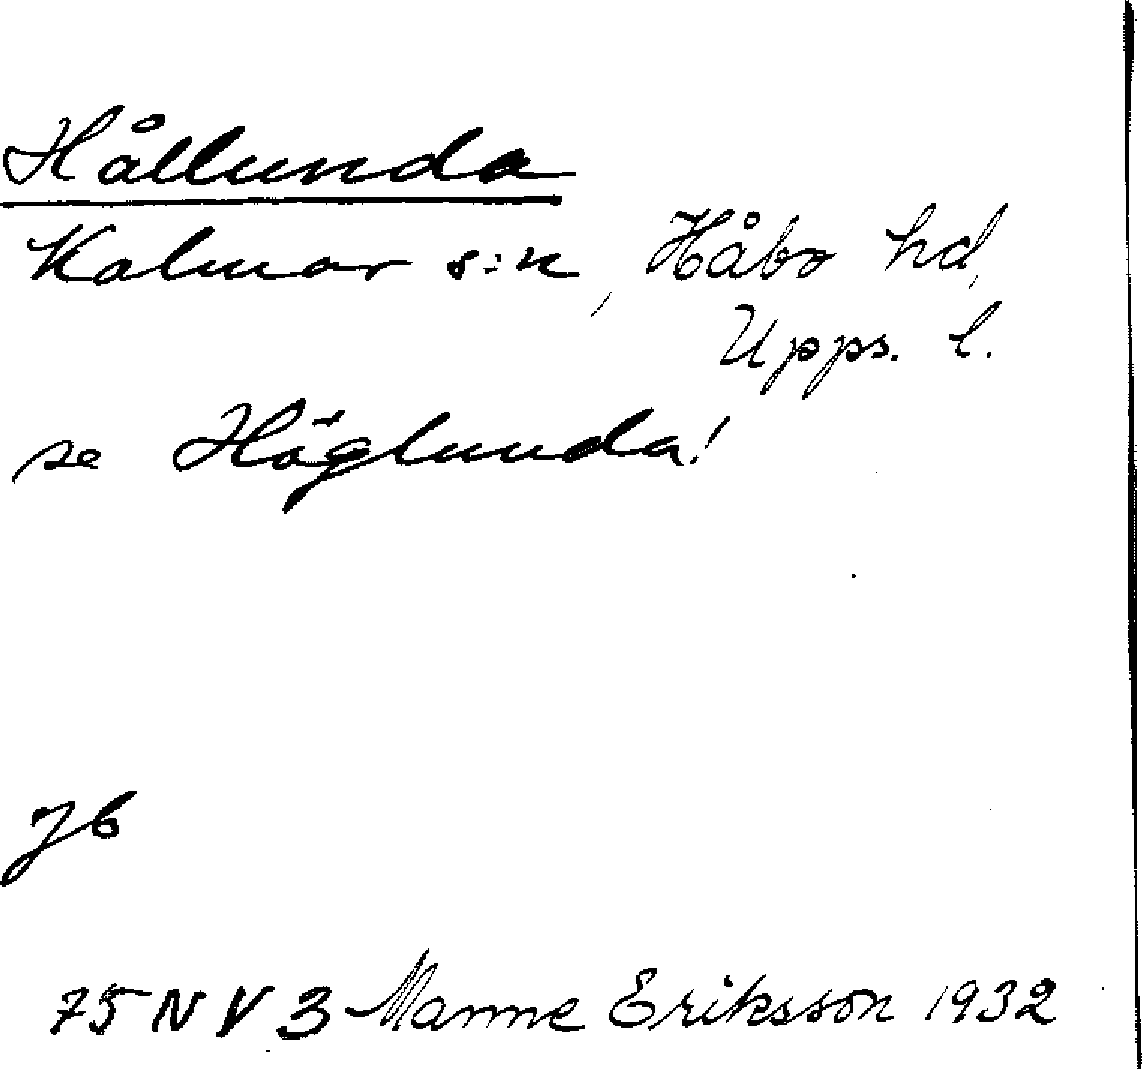 Hållunda
Kalmar s:n, Håbo hd,
Upps. l.
se Höglunda!
Jb
75 NV 3 Manne Eriksson 1932